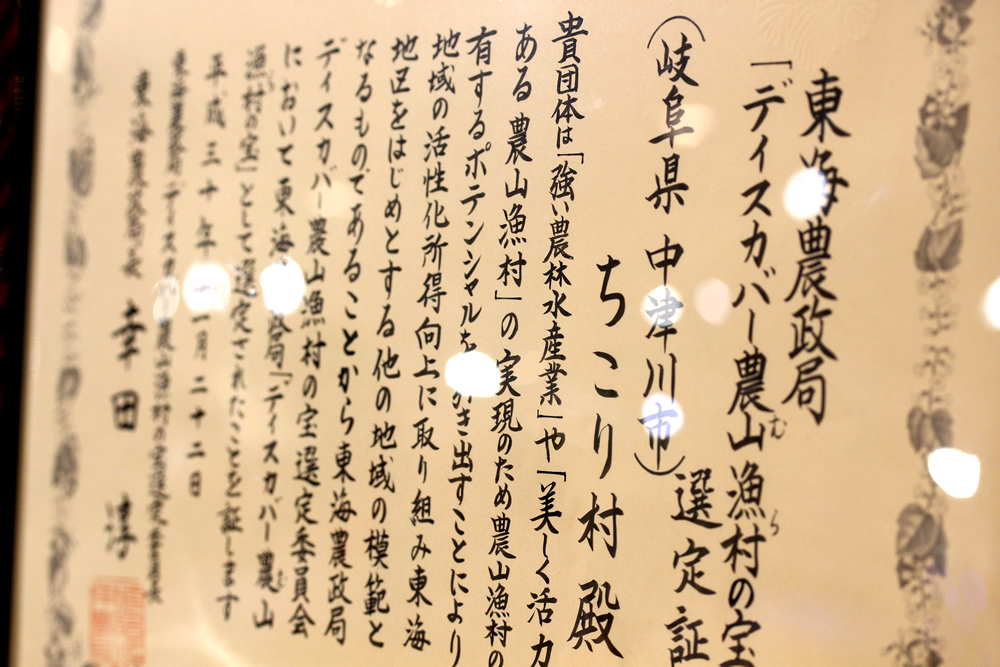 東海農政局
「ディスカバー農山漁村の宝
むら
選定証
（岐阜県 中津川市）
ちこり村 殿
貴団体は「強い農林水産業」や「美しく活力
ある農山漁村」の実現のため農山漁村の
有するポテンシャルを き出すことにより
地域の活性化所得向上に取り組み東海
地区をはじめとする他の地域の模範と
なるものであることから東海農政局
ディスカバー農山漁村の宝選定委員会
において東海 政局「ディスカバー農山
漁村の宝」として選定されたことを証します
平成三十年十一月二十二日
東海農政局ディスカバー農山漁村の宝選定委員長
東海農政局長 幸田 淳